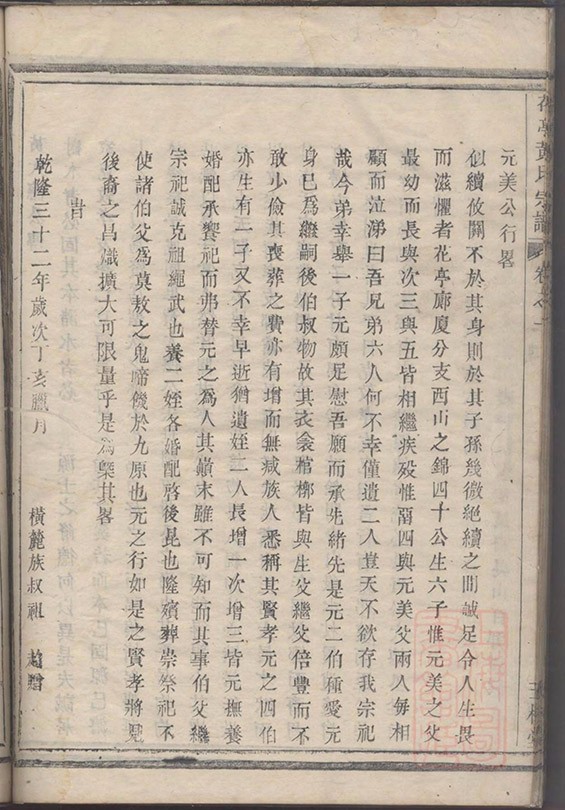 花亭黃氏宗譜
卷之一
元美公行畧
似續攸關不於其身則於其子孫幾微絕續之間誠足令人生畏
而滋懼者花亭廊廈分支西山之錦四十公生六子惟元美之父
最幼而長與次三與五皆相繼疾歿惟畱四與元美父兩人每相
顧而泣涕曰吾兄弟六人何不幸僅遺二人豈天不欲存我宗祀
哉今弟幸舉一子元頗足慰吾願而承先緒先是元二伯種愛元
身已為繼嗣後伯叔物故其衣衾棺槨皆與生父繼父倍豐而不
敢少儉其喪葬之費亦有增而無減族人悉稱其賢孝元之四伯
亦生有一子又不幸早逝猶遺姪二人長增一次增三皆元撫養
婚配承饗祀而弗替元之為人其巔末雖不可知而其事伯父繼
宗祀誠克祖繩武也養二姪各婚配啓後昆也隆殯葬崇祭祀不
使諸伯父為莫敖之鬼啼饑於九原也元之行如是之賢孝將見
後裔之昌熾擴大可限量乎是為槩其畧
旹
乾隆三十二年歲次丁亥臘月　橫麓族叔祖　趙贈